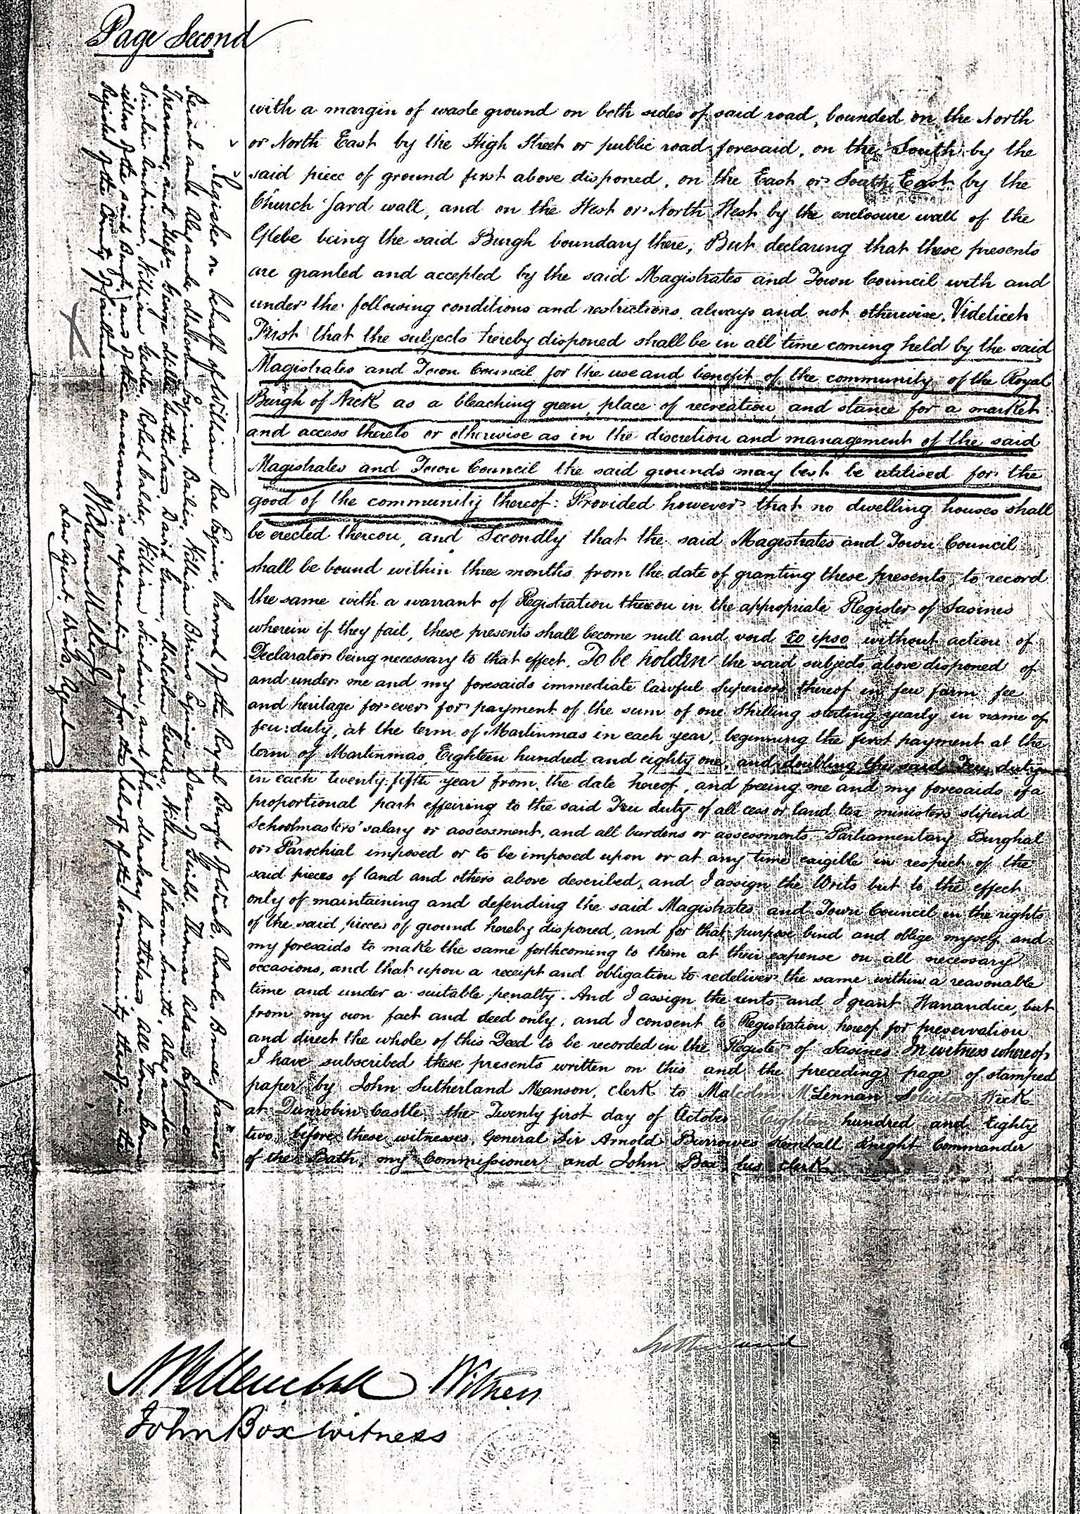 Page Second
with a margin of waste ground on both sides of said road, bounded on the North
or North East by the High Street or public road foresaid, on the South by the
said piece of ground first above disponed, on the East or South East by the
Church Yard wall, and on the West or North West by the enclosure wall of the
Glebe being the said Burgh boundary there; But declaring that these presents
are granted and accepted by the said Magistrates and Town Council with and
under the following conditions and restrictions always and not otherwise, Videlicet
First that the subjects hereby disponed shall be in all time coming held by the said
Magistrates and Town Council for the use and benefit of the community of the Royal
Burgh of Wick as a bleaching green, place of recreation, and stance for a market
and access thereto or otherwise as in the discretion and management of the said
Magistrates and Town Council the said grounds may best be utilised for the
good of the community thereof: Provided however that no dwelling houses shall
be erected thereon, and Secondly that the said Magistrates and Town Council
shall be bound within three months from the date of granting these presents to record
the same with a warrant of Registration thereon in the appropriate Register of Sasines
wherein if they fail, these presents shall become null and void eo ipso without action of
Declarator being necessary to that effect. To be holden the said subjects above disponed of
and under me and my foresaids immediate lawful Superiors thereof in feu farm fee
and heritage for ever for payment of the sum of one Shilling sterling yearly in name of
feu: duty, at the term of Martinmas in each year, beginning the first payment at the
term of Martinmas, Eighteen hundred and eighty one, and doubling the said Feu duty
in each twenty fifth year from the date hereof, and freeing me and my foresaids of a
proportional part effeiring to the said Feu duty of all cess or land tax ministers stipend
Schoolmasters' salary or assessment, and all burdens or assessments Parliamentary Burghal
or Parochial imposed or to be imposed upon or at any time exigible in respect of the
said pieces of land and others above described, and I assign the Writs but to the effect
only of maintaining and defending the said Magistrates and Town Council in the rights
of the said pieces of ground hereby disponed, and for that purpose bind and oblige myself and
my foresaids to make the same forthcoming to them at their expense on all necessary
occasions, and that upon a receipt and obligation to redeliver the same within a reasonable
time and under a suitable penalty. And I assign the rents and I grant Warrandice, but
from my own fact and deed only, and I consent to Registration hereof for preservation
and direct the whole of this Deed to be recorded in the Register of Sasines In witness whereof
I have subscribed these presents written on this and the preceding page of stamped
paper by John Sutherland Manson, Clerk to Malcolm McLennan Solicitor Wick
at Dunrobin Castle the Twenty first day of October Eighteen hundred and Eighty
two before these witnesses, General Sir Arnold Burrowes Kemball Knight Commander
of the Bath, my Commissioner and John Box his clerk
Sutherland
Witness
John Box witness
Register on behalf of William Rae Esquire, Provost of the Royal Burgh of Wick, Charles Bruce, James
Reiach and Alexander Esquires Bailies, William Esquire, Dean of Guild, Thomas Adam Esquire
Treasurer, and George Sutherland, David William Smith, Alexander
William William and John Sutherland All Town Coun
cillors of the said Burgh, and their successors as representing and for the behoof of the Community thereof in the
Register of the County of Caithness
William Miller
Law Agent Wick, Agent